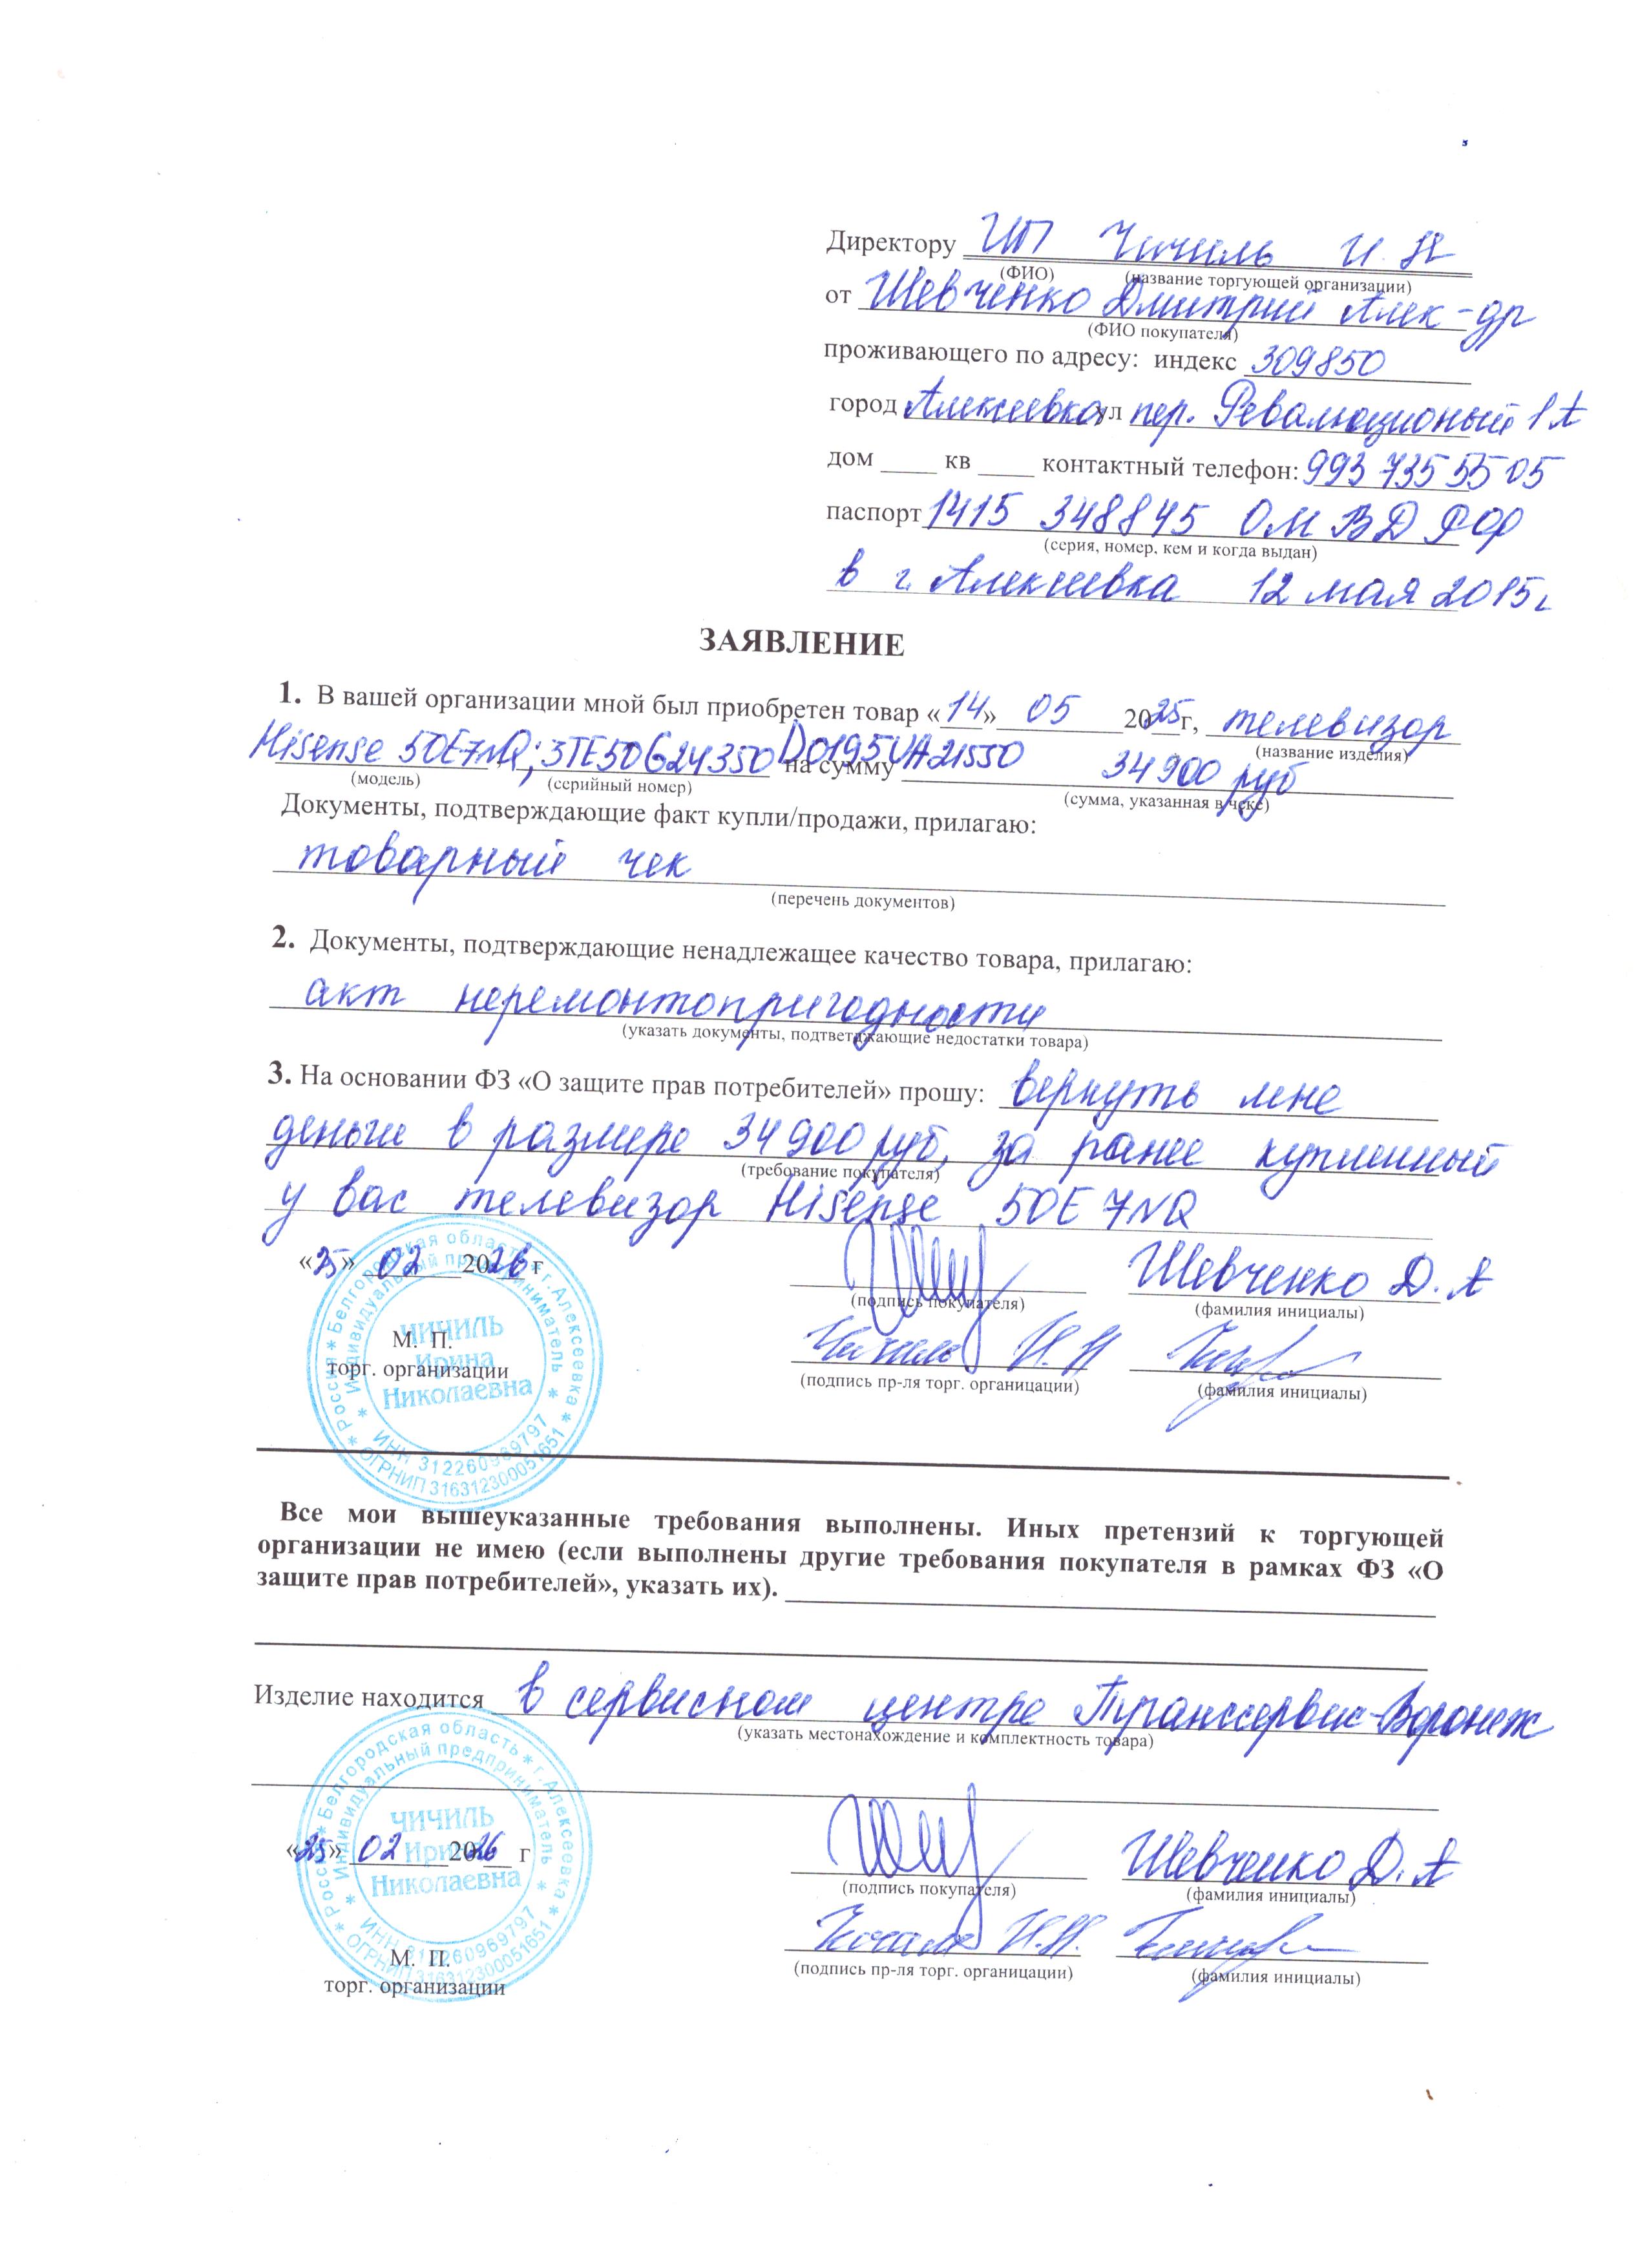 Директору ИП Чичиль И. Н
(ФИО) (название торгующей организации)
от Шевченко Дмитрий Алек-др
(ФИО покупателя)
проживающего по адресу: индекс 309850
город Алексеевка ул пер. Ревалюционый 1А
дом ____ кв ____ контактный телефон: 993 735 55 05
паспорт 1415 348845 ОМВД РФ
(серия, номер, кем и когда выдан)
в г. Алексеевка 12 мая 2015г
ЗАЯВЛЕНИЕ
1. В вашей организации мной был приобретен товар «14» 05 2025г, телевизор
(название изделия)
Hisense 50E7NQ; 3TE50G24350D0195UA21550 на сумму 34 900 руб
(модель) (серийный номер) (сумма, указанная в чеке)
Документы, подтверждающие факт купли/продажи, прилагаю:
товарный чек
(перечень документов)
2. Документы, подтверждающие ненадлежащее качество товара, прилагаю:
акт неремонтопригодности
(указать документы, подтветажающие недостатки товара)
3. На основании ФЗ «О защите прав потребителей» прошу: вернуть мне
деньги в размере 34 900 руб, за ранее купленный
(требование покупателя)
у вас телевизор Hisense 50E7NQ
«25» 02 2026 г Шевченко Д. А
(подпись покупателя) (фамилия инициалы)
М. П. Чичиль И. Н
торг. организации (подпись пр-ля торг. органицации) (фамилия инициалы)
* Россия * Белгородская область * г. Алексеевка *
* Индивидуальный предприниматель *
ЧИЧИЛЬ
Ирина
Николаевна
ИНН 312260969797
ОГРНИП 316312300051651
Все мои вышеуказанные требования выполнены. Иных претензий к торгующей
организации не имею (если выполнены другие требования покупателя в рамках ФЗ «О
защите прав потребителей», указать их).
Изделие находится в сервисном центре Транссервис-Воронеж
(указать местонахождение и комплектность товара)
* Россия * Белгородская область * г. Алексеевка *
* Индивидуальный предприниматель *
ЧИЧИЛЬ
Ирина
Николаевна
ИНН 312260969797
ОГРНИП 316312300051651
«25» 02 2026 г Шевченко Д. А
(подпись покупателя) (фамилия инициалы)
Чичиль И.Н.
М. П. (подпись пр-ля торг. органицации) (фамилия инициалы)
торг. организации